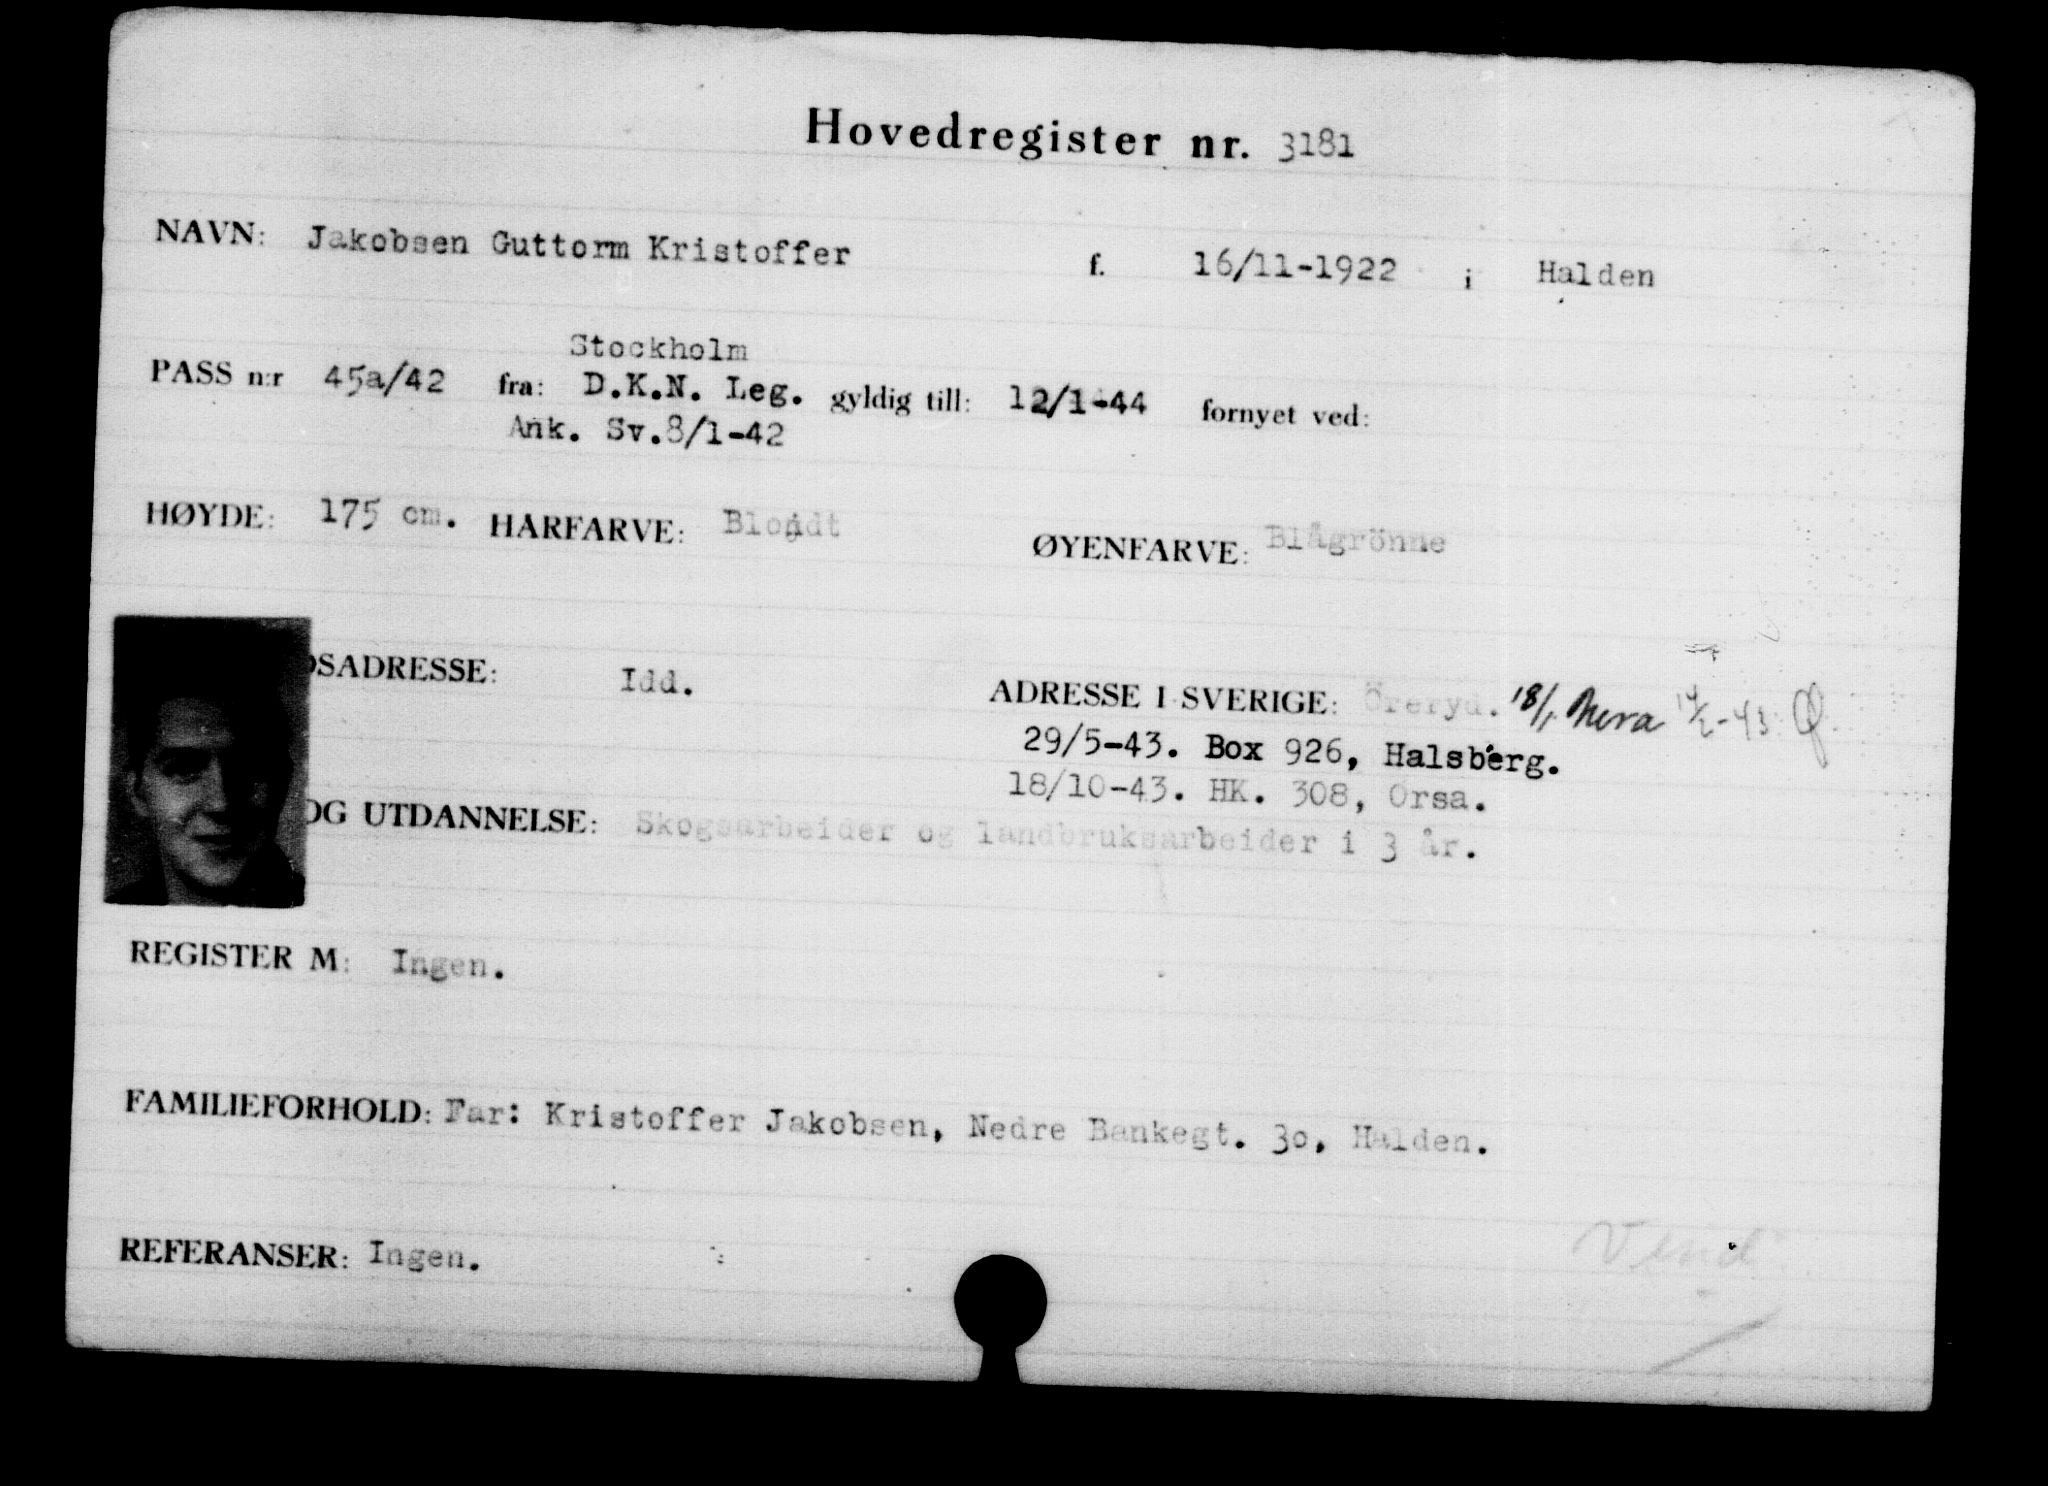 Hovedregister nr. 3181
NAVN: Jakobsen Guttorm Kristoffer f. 16/11-1922 i Halden
Stockholm
PASS n:r 45a/42 fra: D.K.N. Leg. gyldig till: 12/1-44 fornyet ved:
Ank. Sv.8/1-42
HØYDE: 175 cm. HÅRFARVE: Blondt ØYENFARVE: Blågrönne
DSADRESSE: Idd. ADRESSE I SVERIGE: Öreryd. 18/1 Mora 14/2-43
29/5-43. Box 926, Halsberg.
18/10-43. HK. 308, Orsa.
OG UTDANNELSE: Skogsarbeider og landbruksarbeider i 3 år.
REGISTER M: Ingen.
FAMILIEFORHOLD: Far: Kristoffer Jakobsen, Nedre Bankegt. 30, Halden.
REFERANSER: Ingen.
Vend